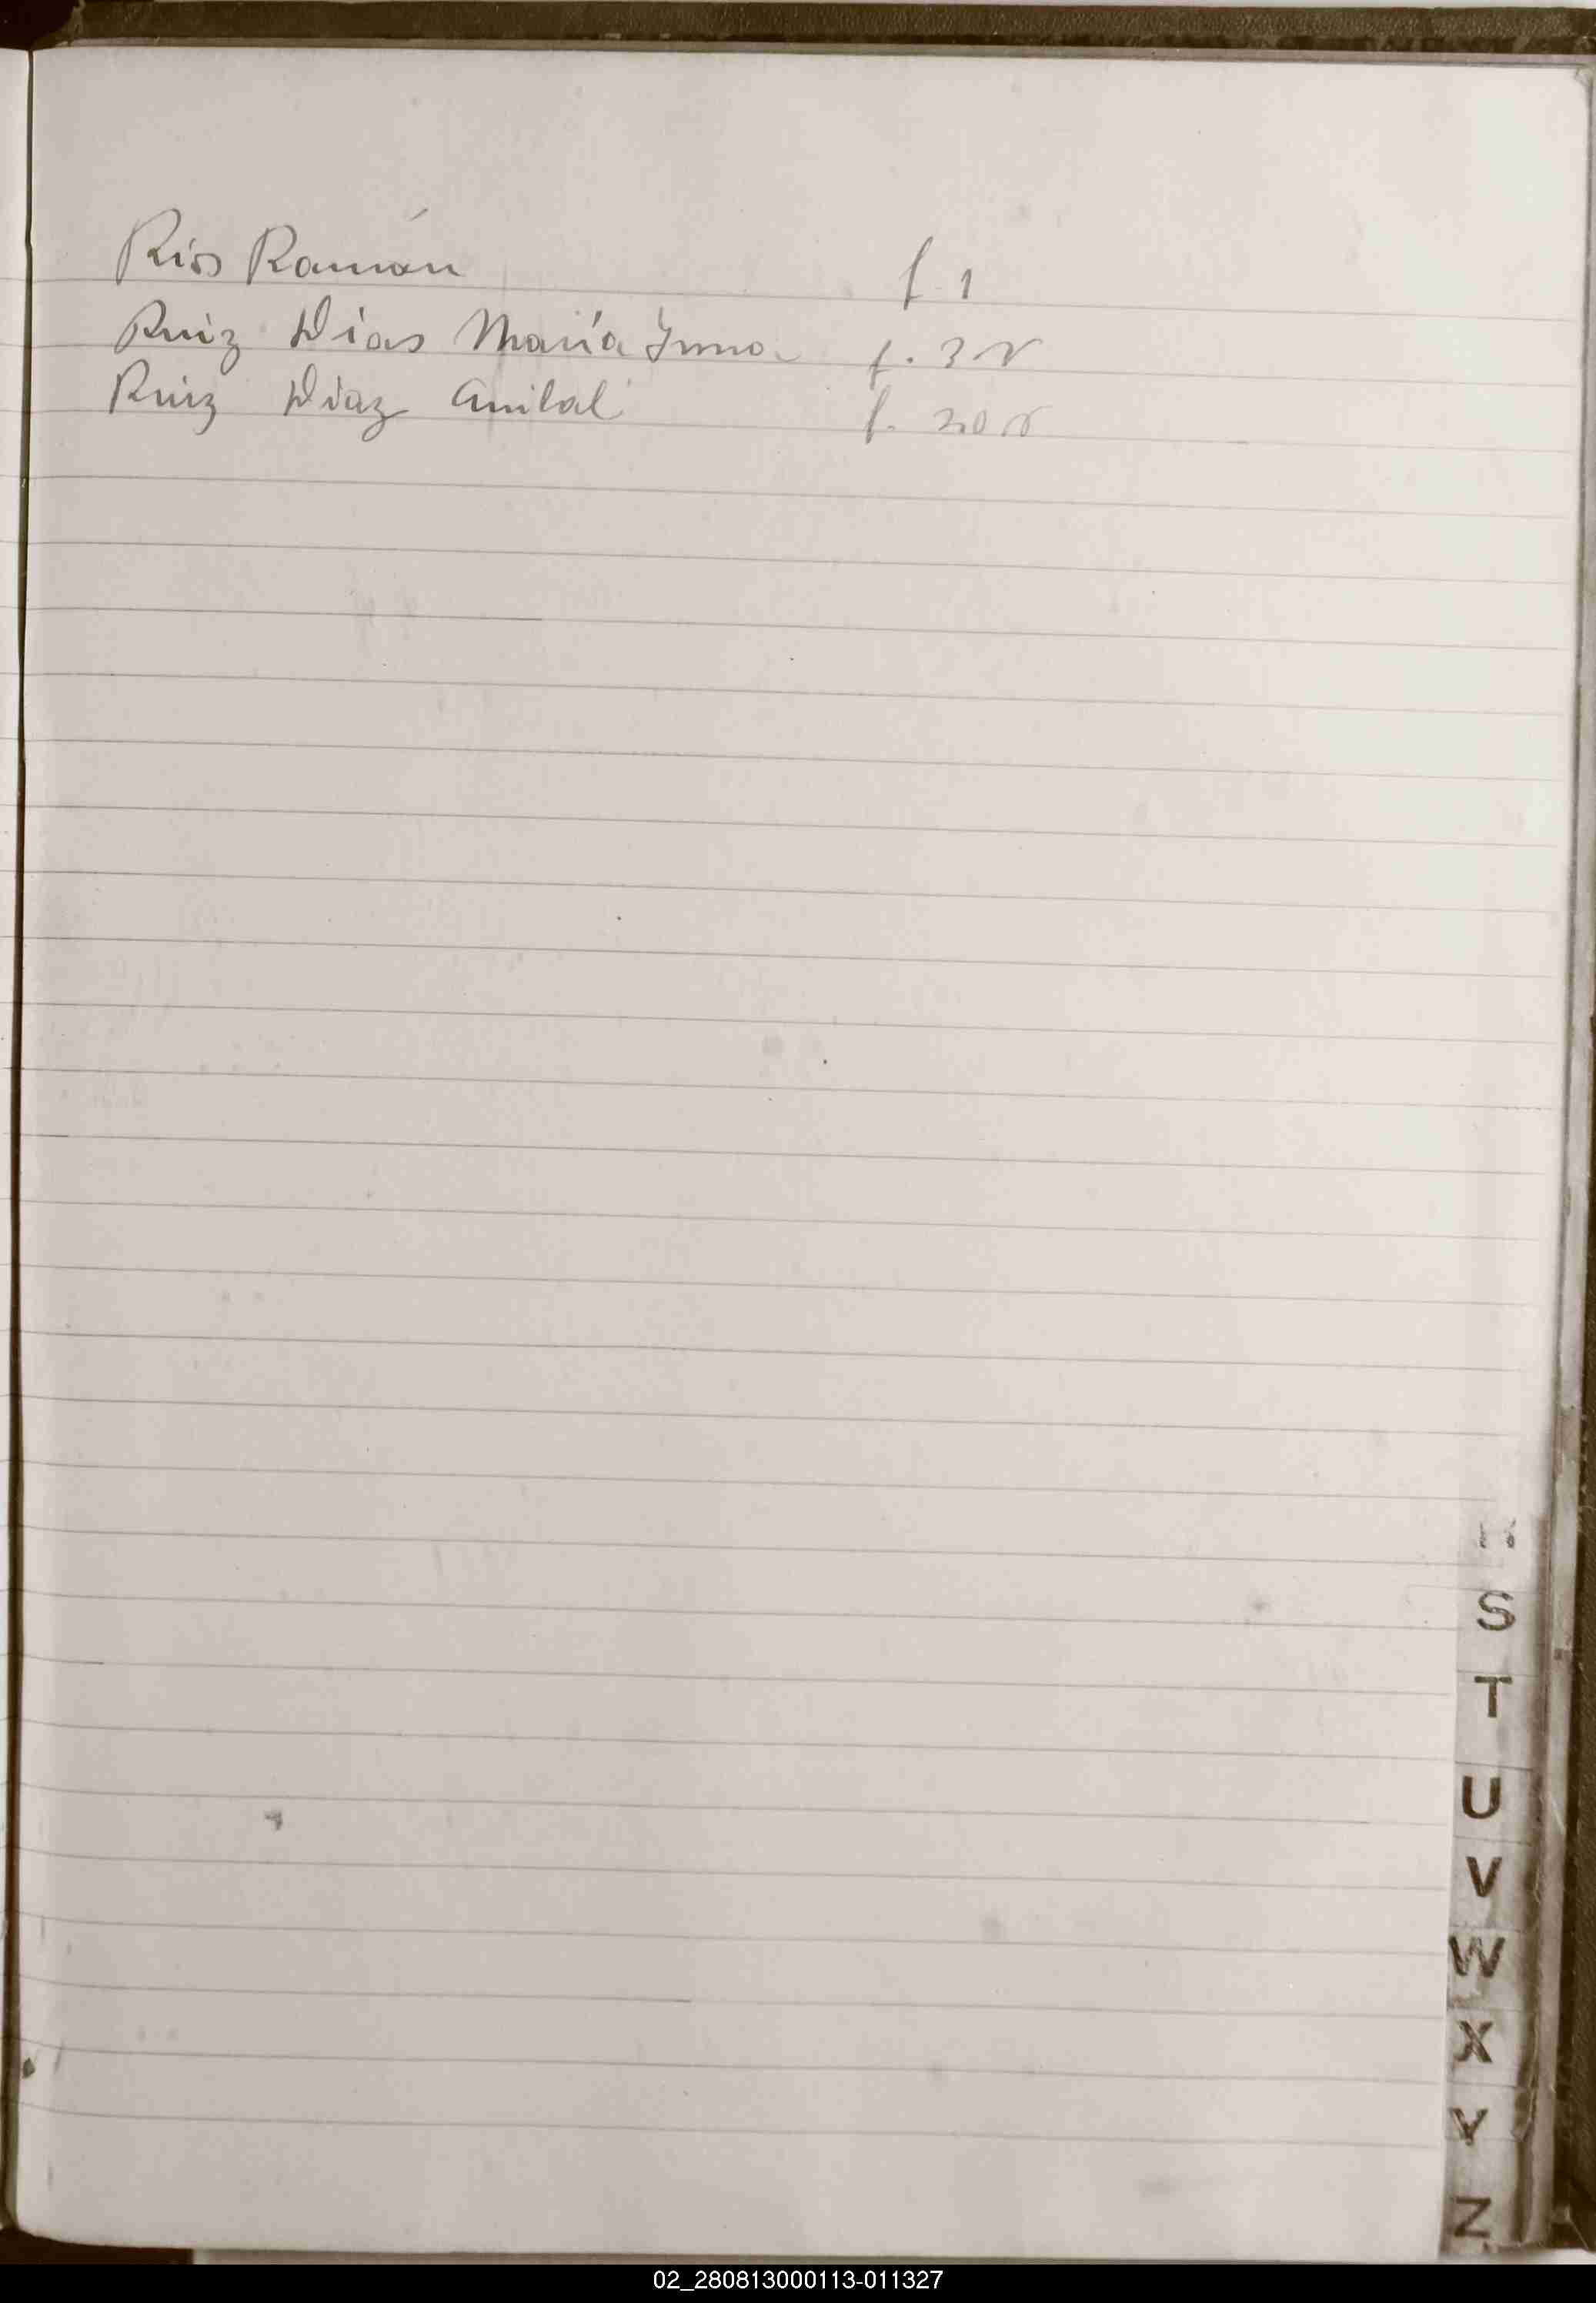 Rios Ramón f. 1
Ruiz Dias María Inma f. 3 v
Ruiz Diaz Anibal f. 20 v
R
S
T
U
V
W
X
Y
Z
02_280813000113-011327